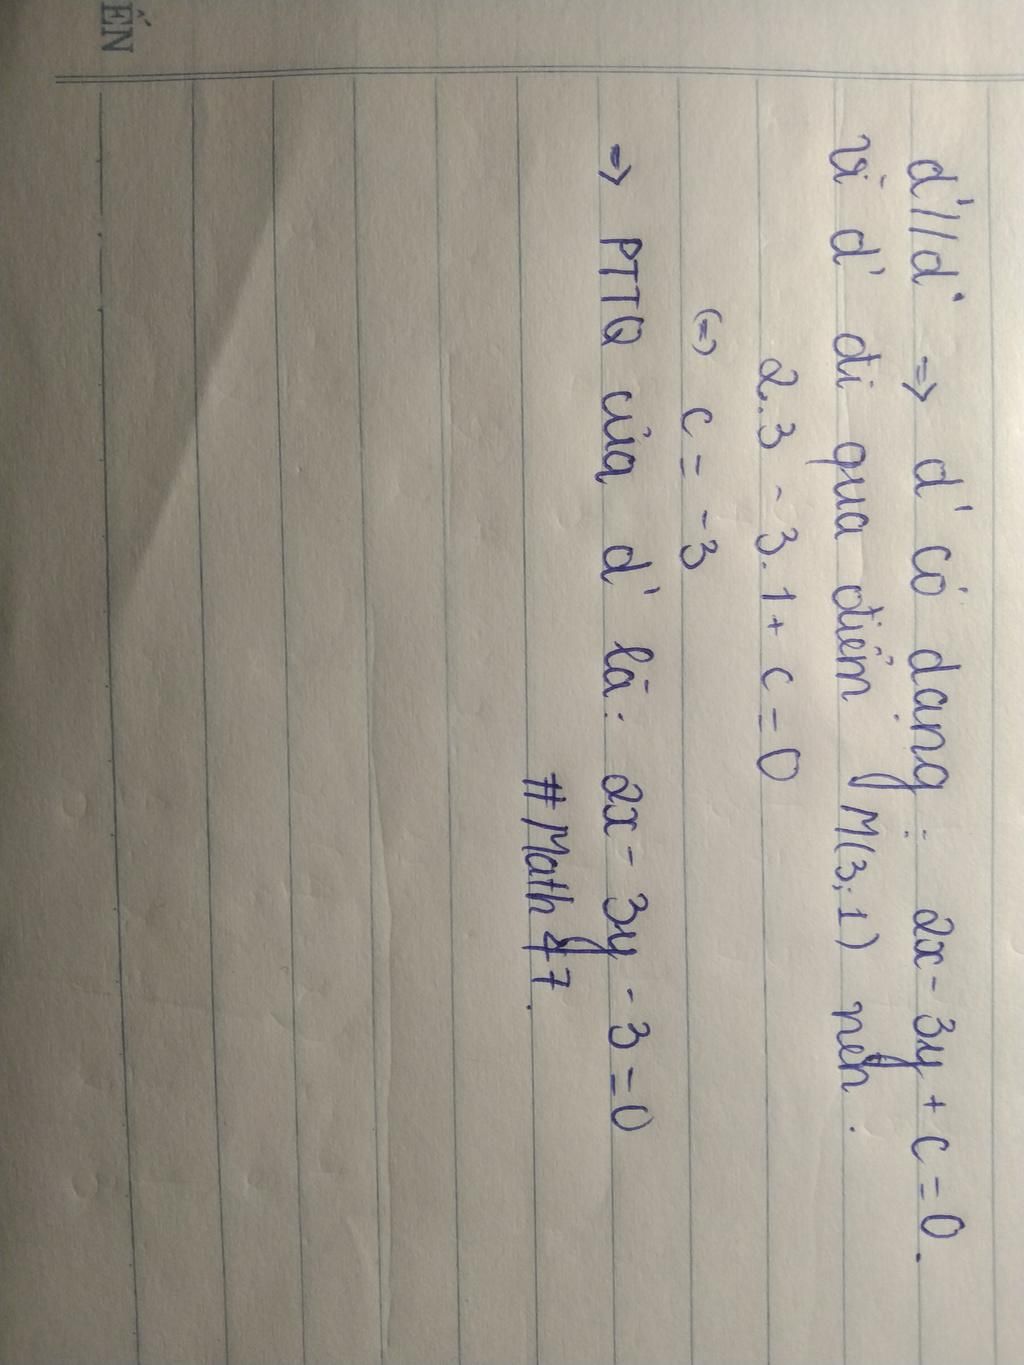 d'//d. => d' có dạng: 2x - 3y + c = 0.
Vì d' đi qua điểm M(3;1) nên.
2.3 - 3.1 + c = 0
(=) c = -3
=> PTTQ của d' là: 2x - 3y - 3 = 0
#Math47.
ẾN